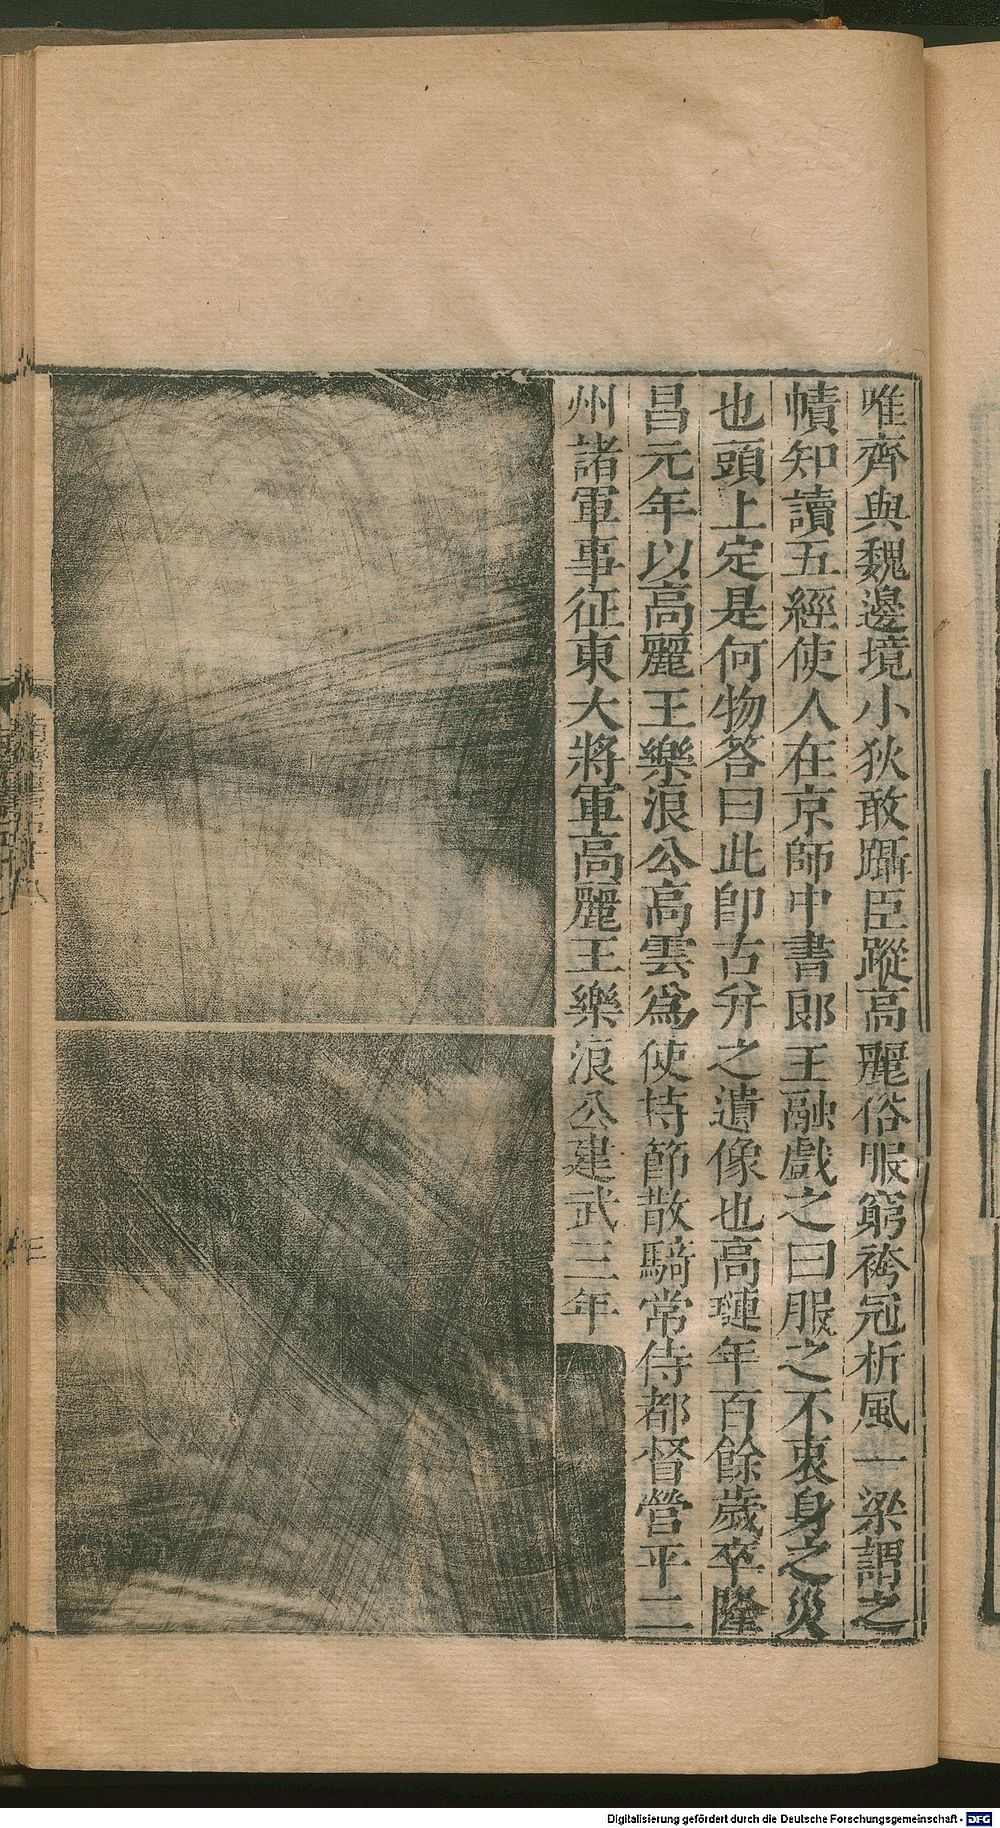 唯齊與魏邊境小狄敢躡臣蹤高麗俗服窮袴冠折風一梁謂之
幘知讀五經使人在京師中書郎王融戲之曰服之不衷身之災
也頭上定是何物答曰此即古弁之遺像也高璉年百餘歲卒隆
昌元年以高麗王樂浪公高雲爲使持節散騎常侍都督營平二
州諸軍事征東大將軍高麗王樂浪公建武三年
Digitalisierung gefördert durch die Deutsche Forschungsgemeinschaft - DFG